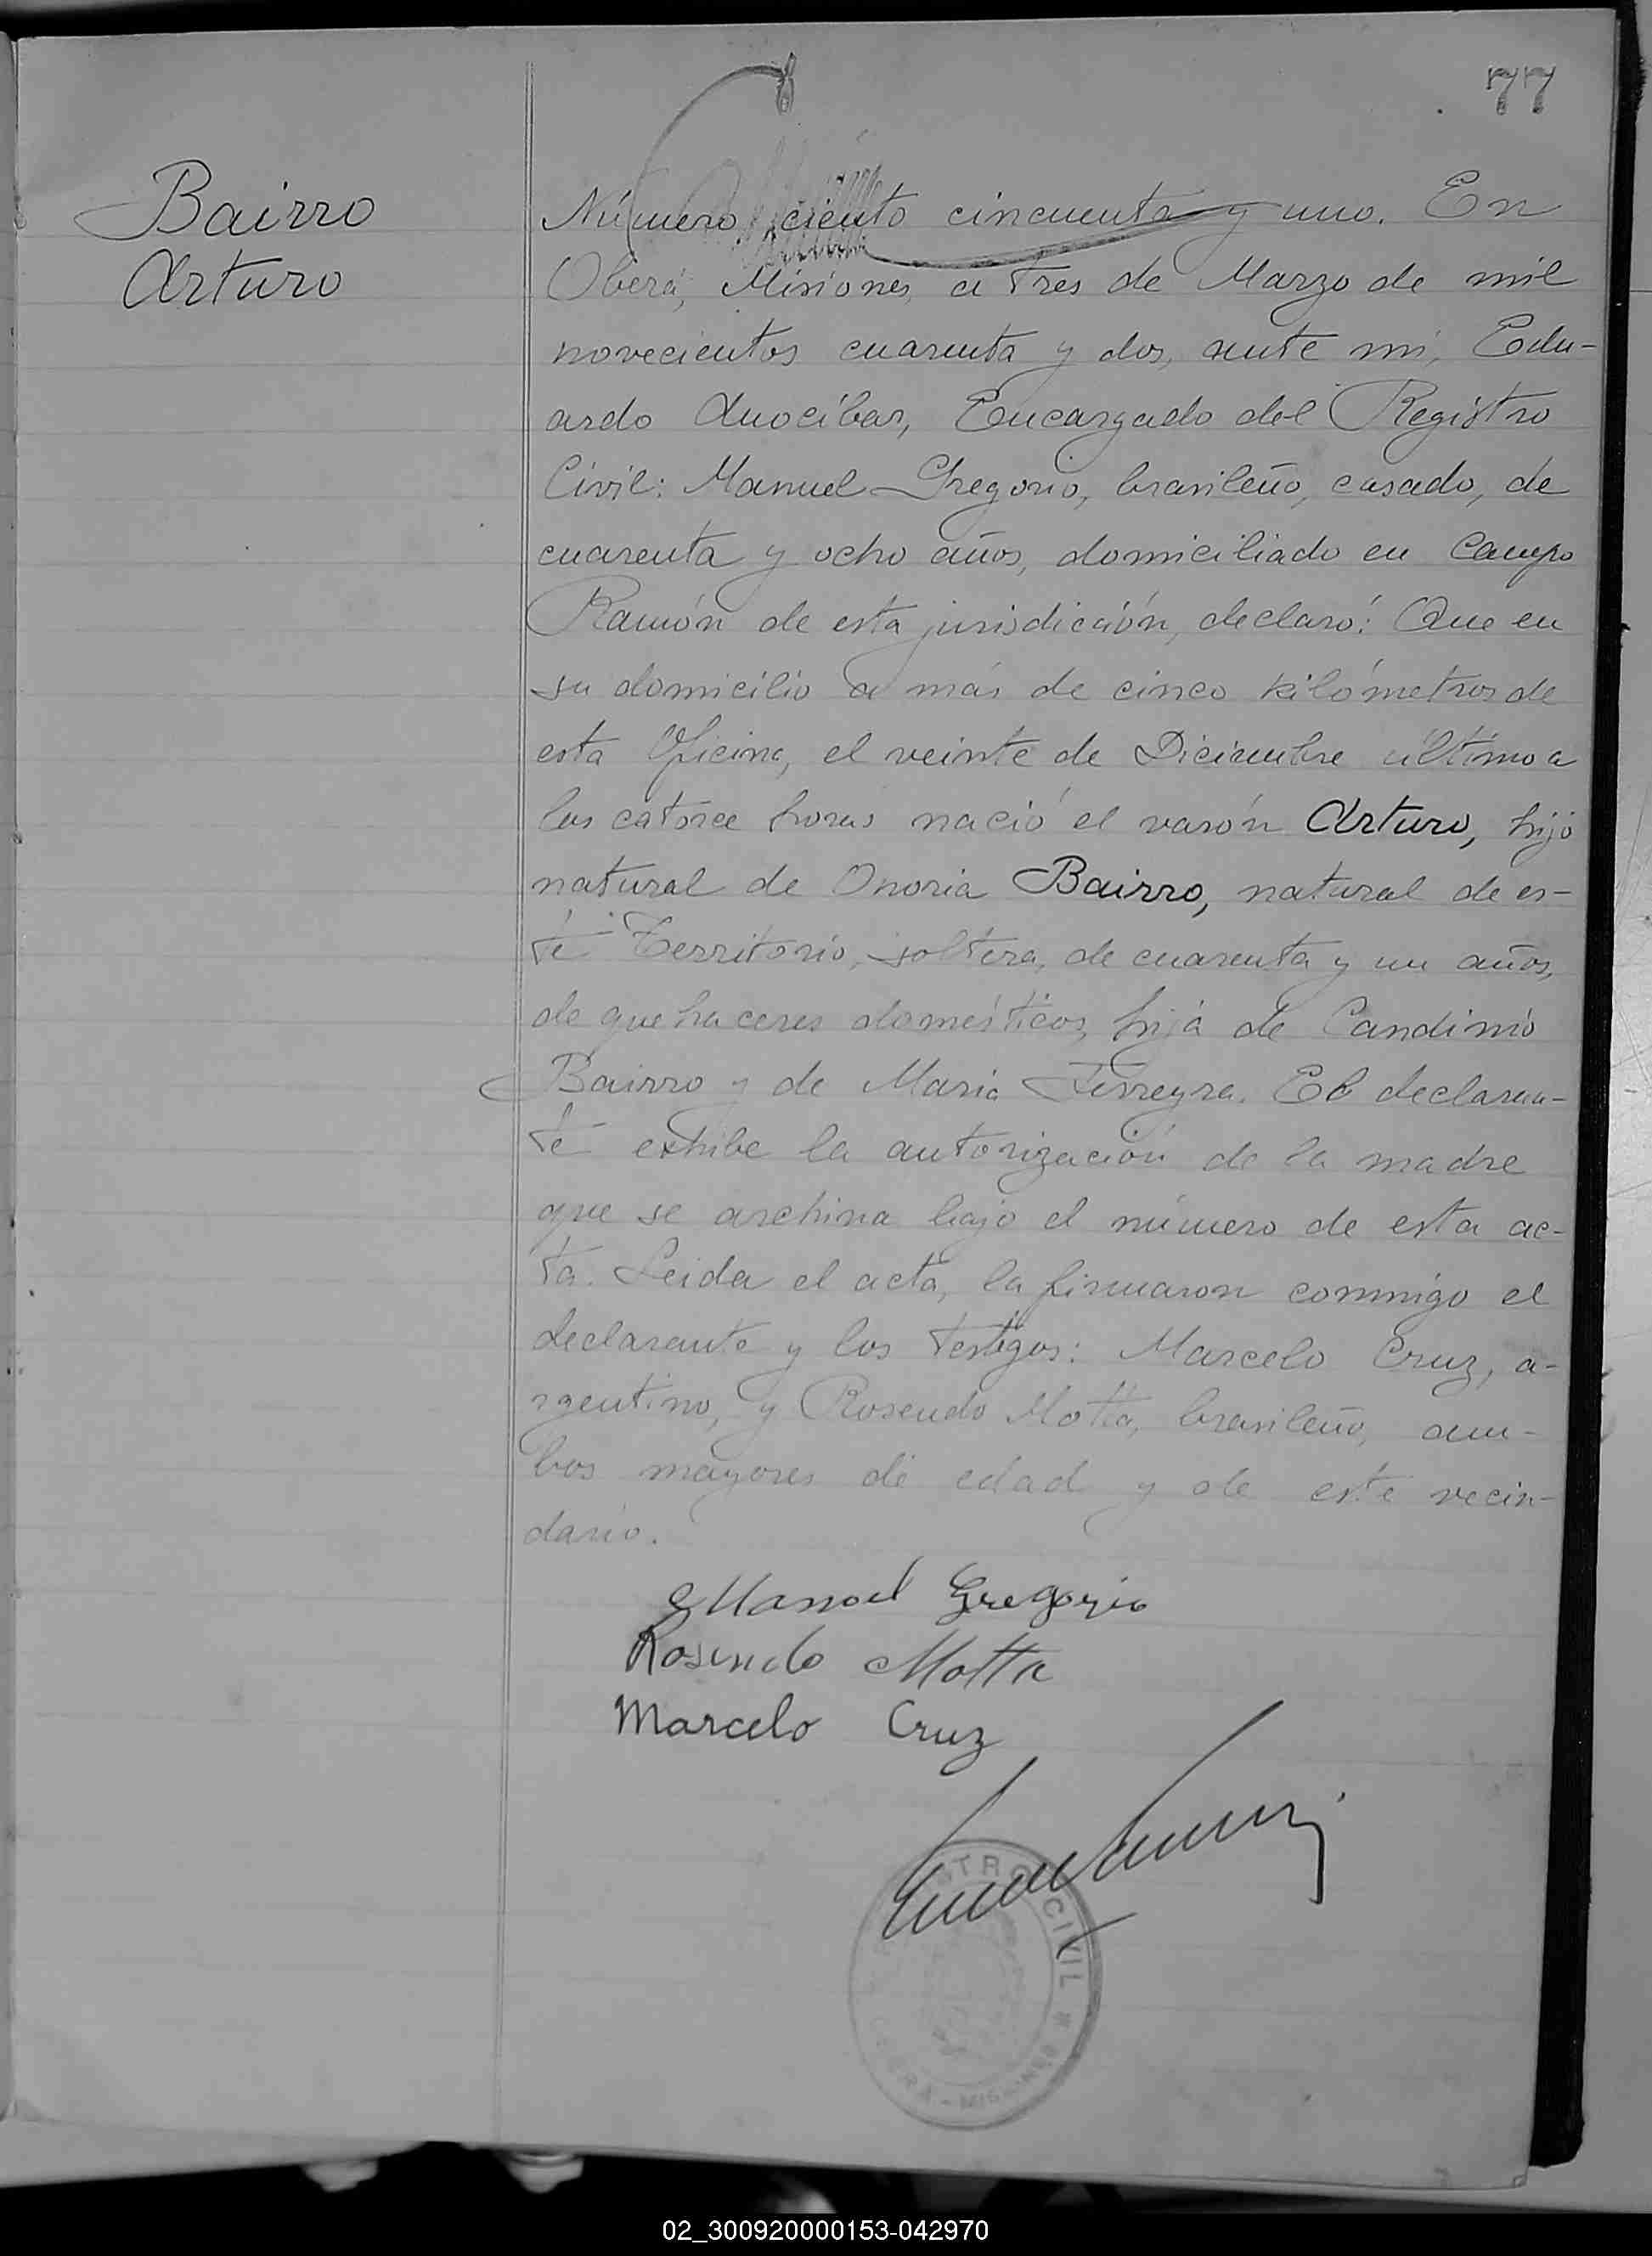 77
Bairro
Arturo
Número ciento cincuenta y uno. En
Oberá, Misiones, a tres de Marzo de mil
novecientos cuarenta y dos, ante mí, Edu-
ardo Anocíbar, Encargado del Registro
Civil: Manuel Gregorio, brasileño, casado, de
cuarenta y ocho años, domiciliado en Campo
Ramón de esta jurisdicción, declaró: Que en
su domicilio a más de cinco kilómetros de
esta Oficina, el veinte de Diciembre último a
las catorce horas nació el varón Arturo, hijo
natural de Onoria Bairro, natural de es-
te Territorio, soltera, de cuarenta y un años,
de quehaceres domésticos, hija de Candinio
Bairro y de Maria Ferreyra. El declaran-
te exhibe la autorización de la madre
que se archiva bajo el número de esta ac-
ta. Leida el acta, la firmaron conmigo el
declarante y los testigos: Marcelo Cruz, a-
rgentino, y Rosendo Motta, brasileño, am-
bos mayores de edad y de este vecin-
dario.
Manoel Gregorio
Rosendo Motta
Marcelo Cruz
REGISTRO CIVIL * OBERA - MISIONES
02_300920000153-042970